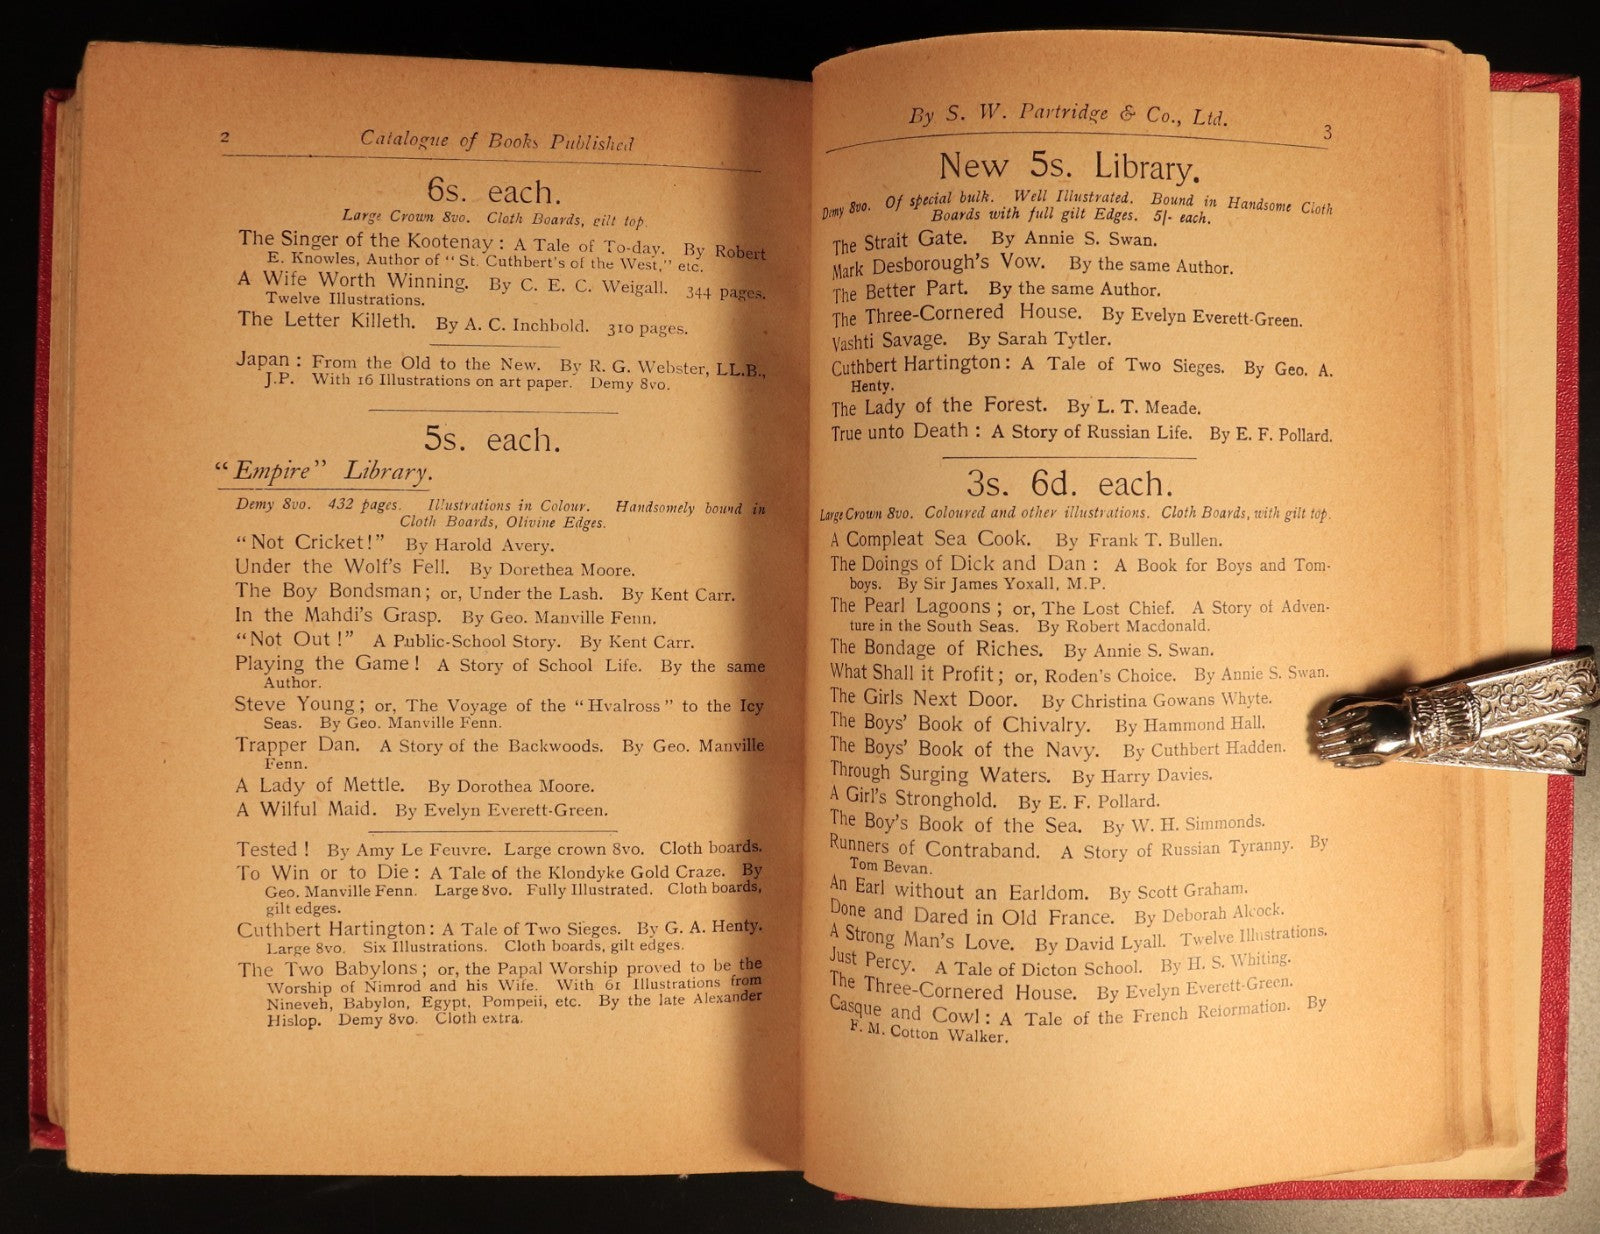 2
Catalogue of Books Published
6s. each.
Large Crown 8vo. Cloth Boards, gilt top.
The Singer of the Kootenay: A Tale of To-day. By Robert
E. Knowles, Author of "St. Cuthbert's of the West," etc.
A Wife Worth Winning. By C. E. C. Weigall. 344 pages.
Twelve Illustrations.
The Letter Killeth. By A. C. Inchbold. 310 pages.
Japan: From the Old to the New. By R. G. Webster, LL.B.,
J.P. With 16 Illustrations on art paper. Demy 8vo.
5s. each.
"Empire" Library.
Demy 8vo. 432 pages. Illustrations in Colour. Handsomely bound in
Cloth Boards, Olivine Edges.
"Not Cricket!" By Harold Avery.
Under the Wolf's Fell. By Dorethea Moore.
The Boy Bondsman; or, Under the Lash. By Kent Carr.
In the Mahdi's Grasp. By Geo. Manville Fenn.
"Not Out!" A Public-School Story. By Kent Carr.
Playing the Game! A Story of School Life. By the same
Author.
Steve Young; or, The Voyage of the "Hvalross" to the Icy
Seas. By Geo. Manville Fenn.
Trapper Dan. A Story of the Backwoods. By Geo. Manville
Fenn.
A Lady of Mettle. By Dorothea Moore.
A Wilful Maid. By Evelyn Everett-Green.
Tested! By Amy Le Feuvre. Large crown 8vo. Cloth boards.
To Win or to Die: A Tale of the Klondyke Gold Craze. By
Geo. Manville Fenn. Large 8vo. Fully Illustrated. Cloth boards,
gilt edges.
Cuthbert Hartington: A Tale of Two Sieges. By G. A. Henty.
Large 8vo. Six Illustrations. Cloth boards, gilt edges.
The Two Babylons; or, the Papal Worship proved to be the
Worship of Nimrod and his Wife. With 61 Illustrations from
Nineveh, Babylon, Egypt, Pompeii, etc. By the late Alexander
Hislop. Demy 8vo. Cloth extra.
By S. W. Partridge & Co., Ltd.
3
New 5s. Library.
Demy 8vo. Of special bulk. Well Illustrated. Bound in Handsome Cloth
Boards with full gilt Edges. 5/- each.
The Strait Gate. By Annie S. Swan.
Mark Desborough's Vow. By the same Author.
The Better Part. By the same Author.
The Three-Cornered House. By Evelyn Everett-Green.
Vashti Savage. By Sarah Tytler.
Cuthbert Hartington: A Tale of Two Sieges. By Geo. A.
Henty.
The Lady of the Forest. By L. T. Meade.
True unto Death: A Story of Russian Life. By E. F. Pollard.
3s. 6d. each.
Large Crown 8vo. Coloured and other illustrations. Cloth Boards, with gilt top.
A Compleat Sea Cook. By Frank T. Bullen.
The Doings of Dick and Dan: A Book for Boys and Tom-
boys. By Sir James Yoxall, M.P.
The Pearl Lagoons; or, The Lost Chief. A Story of Adven-
ture in the South Seas. By Robert Macdonald.
The Bondage of Riches. By Annie S. Swan.
What Shall it Profit; or, Roden's Choice. By Annie S. Swan.
The Girls Next Door. By Christina Gowans Whyte.
The Boys' Book of Chivalry. By Hammond Hall.
The Boys' Book of the Navy. By Cuthbert Hadden.
Through Surging Waters. By Harry Davies.
A Girl's Stronghold. By E. F. Pollard.
The Boy's Book of the Sea. By W. H. Simmonds.
Runners of Contraband. A Story of Russian Tyranny. By
Tom Bevan.
An Earl without an Earldom. By Scott Graham.
Done and Dared in Old France. By Deborah Alcock.
A Strong Man's Love. By David Lyall. Twelve Illustrations.
Just Percy. A Tale of Dicton School. By H. S. Whiting.
The Three-Cornered House. By Evelyn Everett-Green.
Casque and Cowl: A Tale of the French Reformation. By
F. M. Cotton Walker.